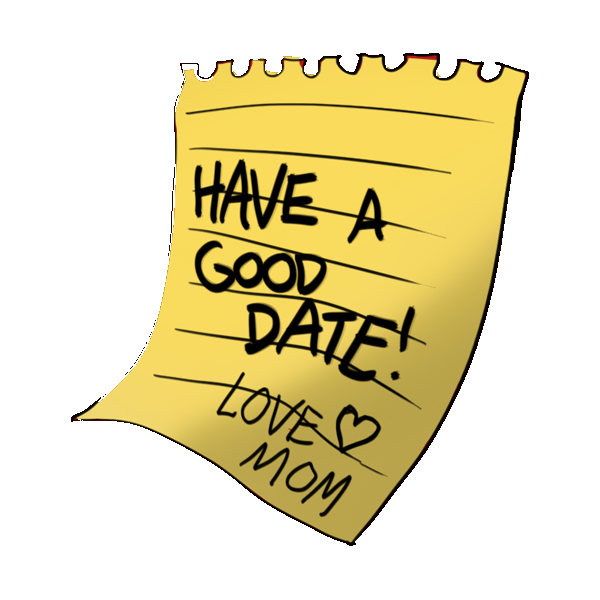 HAVE A
GOOD
DATE!
LOVE ♡
MOM